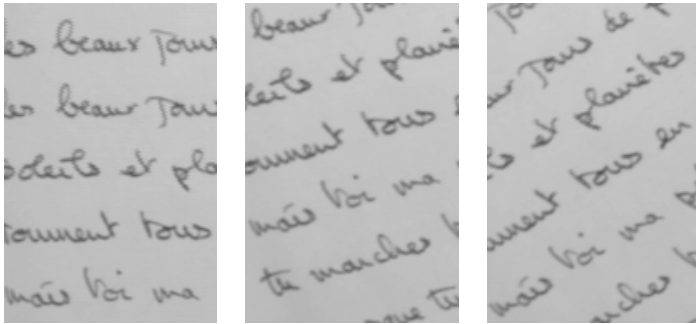 les beaux Jours
les beaux Jours
soleils et pla
tournent tous
mais toi ma
beaux Jou
leils et planè
ournent tous e
mais toi ma
tu marches
que tu
Jou
ur Jours de
ls et planètes
nment tous en
mais toi ma
marches